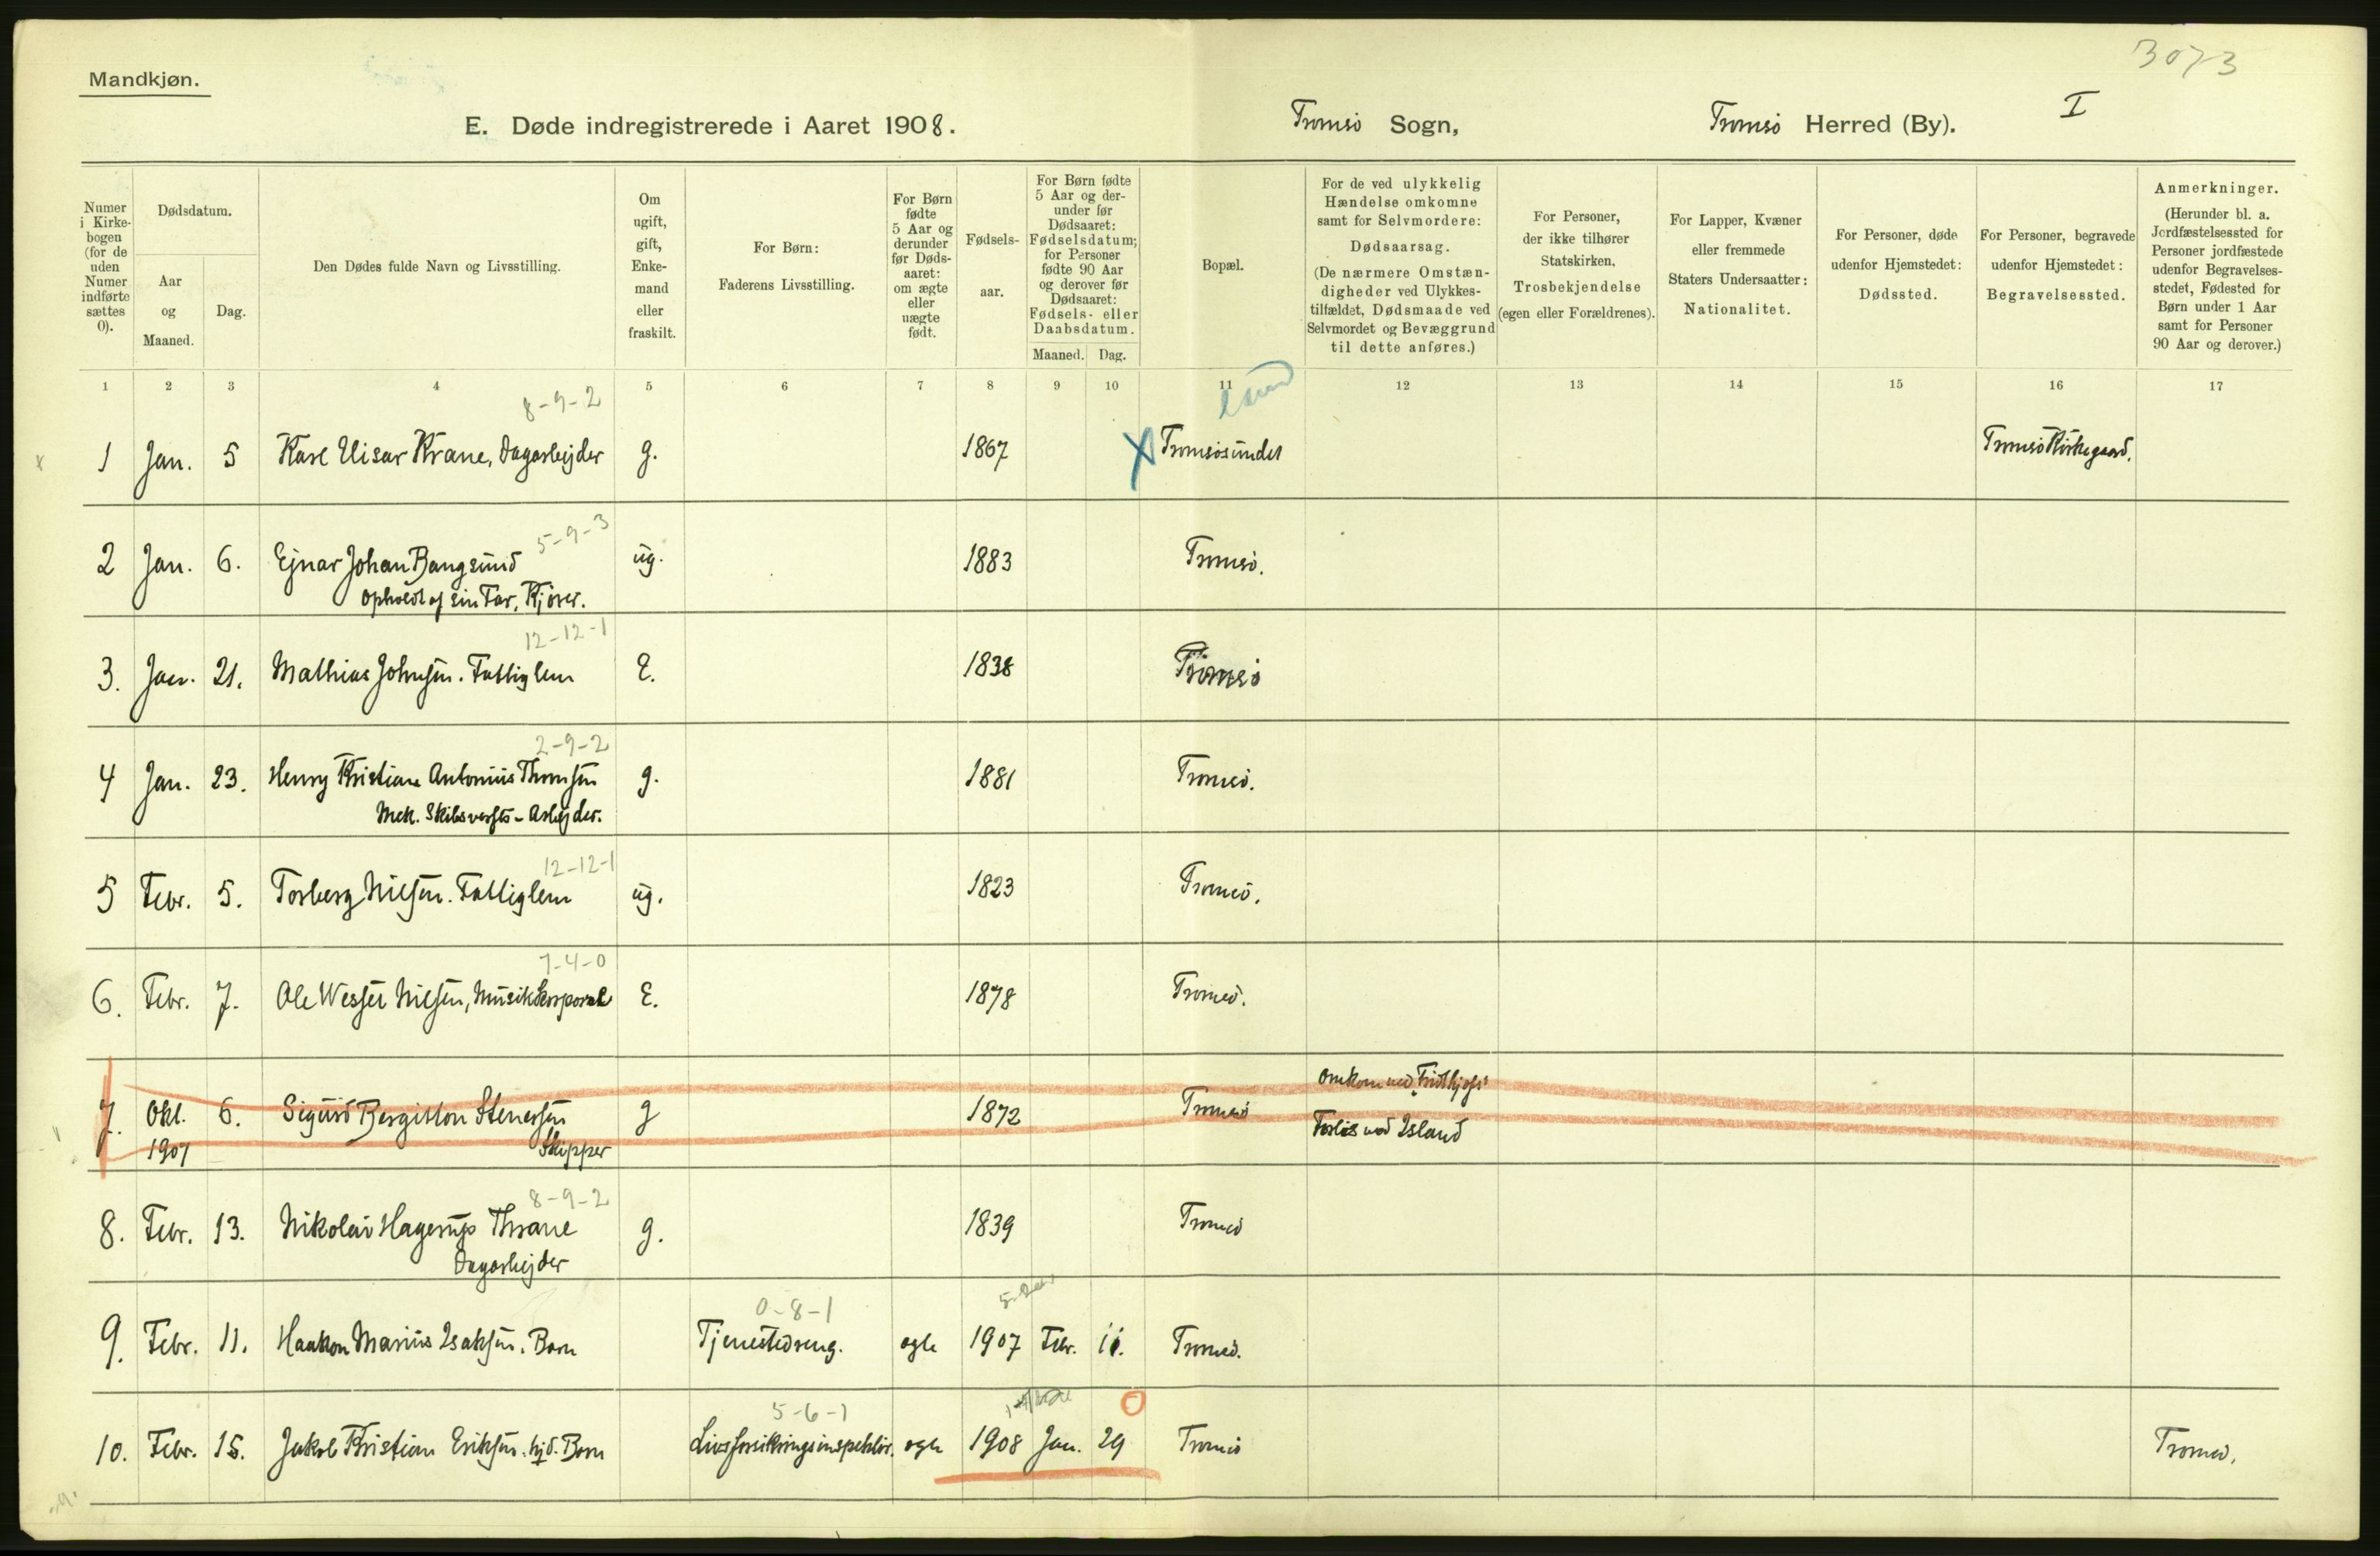 3073
Mandkjøn.
E. Døde indregistrerede i Aaret 1908.
Tromsø Sogn,
Tromsø Herred (By).
I
Numer i Kirke-bogen (for de uden Numer indførte sættes 0).
Dødsdatum.
Aar og Maaned.
Dag.
Den Dødes fulde Navn og Livsstilling.
Om ugift, gift, Enke-mand eller fraskilt.
For Børn: Faderens Livsstilling.
For Børn fødte 5 Aar og derunder før Døds-aaret: om ægte eller uægte født.
Fødsels-aar.
For Børn fødte 5 Aar og der-under før Dødsaaret: Fødselsdatum; for Personer fødte 90 Aar og derover før Dødsaaret: Fødsels- eller Daabsdatum.
Maaned. Dag.
Bopæl.
For de ved ulykkelig Hændelse omkomne samt for Selvmordere: Dødsaarsag. (De nærmere Omstæn-digheder ved Ulykkes-tilfældet, Dødsmaade ved Selvmordet og Bevæggrund til dette anføres.)
For Personer, der ikke tilhører Statskirken, Trosbekjendelse (egen eller Forældrenes).
For Lapper, Kvæner eller fremmede Staters Undersaatter: Nationalitet.
For Personer, døde udenfor Hjemstedet: Dødssted.
For Personer, begravede udenfor Hjemstedet: Begravelsessted.
Anmerkninger. (Herunder bl. a. Jordfæstelsessted for Personer jordfæstede udenfor Begravelses-stedet, Fødested for Børn under 1 Aar samt for Personer 90 Aar og derover.)
1 2 3 4 5 6 7 8 9 10 11 12 13 14 15 16 17
8-9-2
1 Jan. 5 Karl Krane, Dagarbejder g. 1867 X Tromsøsundet Tromsø Kirkegaard.
5-9-3
2 Jan. 6. Ejnar Johan Bangsund ug. 1883 Tromsø.
Opholdt af sin Far,
12-12-1
3. Jan. 21. Mathias Johnsen. Fattiglem E. 1838 Tromsø
2-9-2
4 Jan. 23. Henry Kristian Antonius Thomsen g. 1881 Tromsø.
Mek. Skibsverfts-Arbejder.
12-12-1
5 Febr. 5. Torberg Nilsen. Fattiglem ug. 1823 Tromsø.
7-4-0
6. Febr. 7. Ole Nilsen, Musikkorporal E. 1878 Tromsø.
7. Okt. 6. Sigurd Bergitton Stenersen g 1872 Tromsø Omkom ved "Fridthjofs"
1907 Skipper Forlis ved Island
8-9-2
8. Febr. 13. Nikolai Hagerup Thrane g. 1839 Tromsø
Dagarbejder
0-8-1
9. Febr. 11. Haakon Marius Isaksen. Barn Tjenestedreng. ægte 1907 Febr. 11. Tromsø.
5-6-1
10. Febr. 15. Jakob Kristian Eriksen. hjd. Barn Livsforsikringsinspektør. ægte 1908 Jan. 29 Tromsø Tromsø.